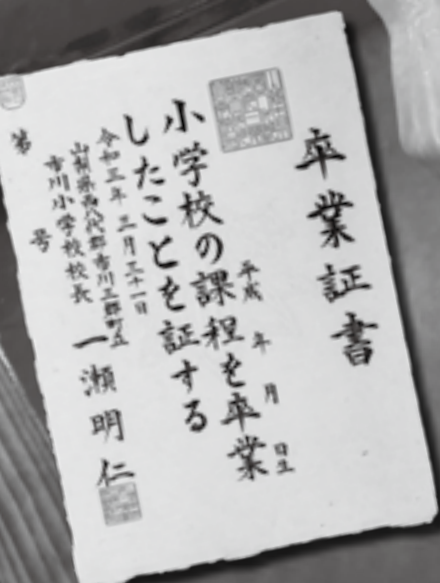 卒業証書
平成　年　月　日生
小学校の課程を卒業
したことを証する
令和三年三月三十一日
山梨県西八代郡市川三郷町立
市川小学校校長　一瀬明仁
第　号